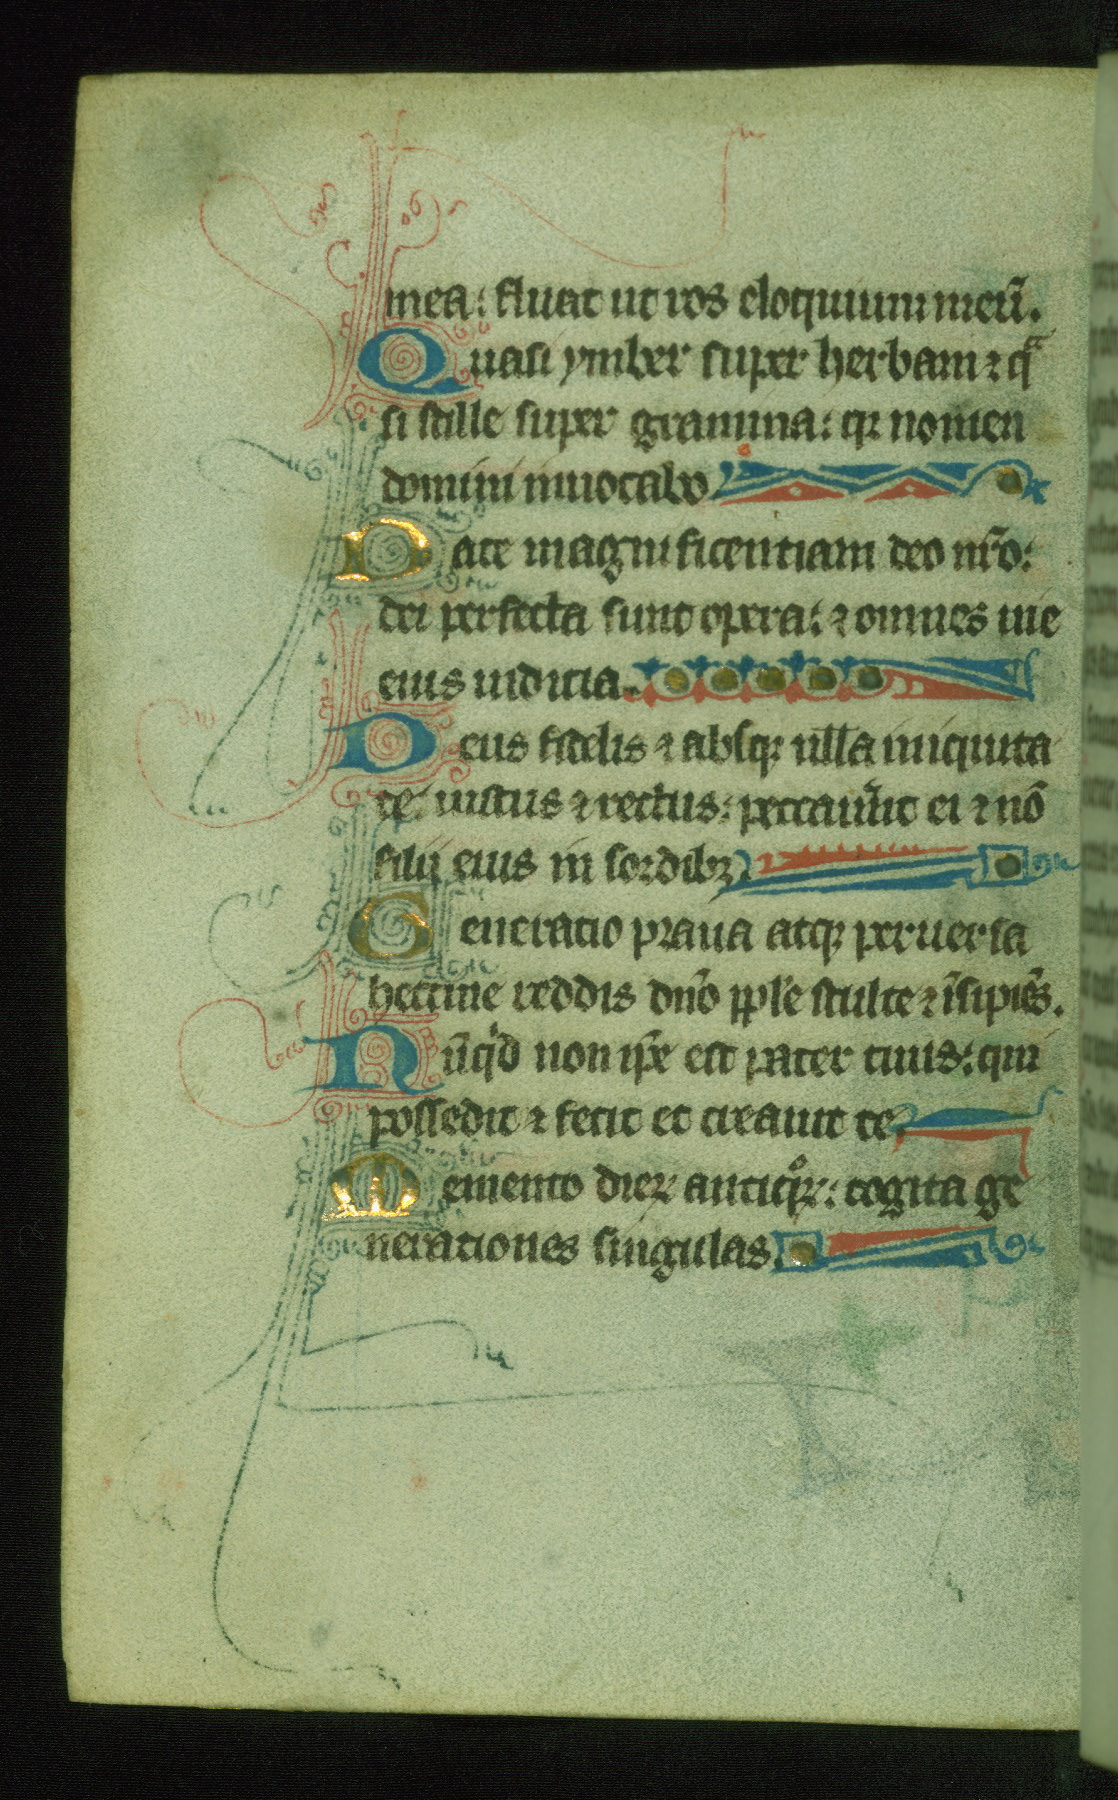 mea: fluat ut ros eloquium meū.
Quasi ymber super herbam ⁊ qᵃ
si stille super gramina: qꝛ nomen
domini inuocabo
Date magnificentiam deo nr̄o:
dei perfecta sunt opera: ⁊ omnes uie
eius iudicia.
Deus fidelis ⁊ absqꝫ ulla iniquita
te: iustus ⁊ rectus: peccauer̄t ei ⁊ nō
filij eius in sordibꝫ
Generatio praua atqꝫ peruersa
heccine reddis dn̄o pple stulte ⁊ īsipiēs.
Nūqͥd non ip̄e est pater tuus: qui
possedit ⁊ fecit et creauit te.
Memento dieꝝ antiqͦꝝ: cogita ge
nerationes singulas.